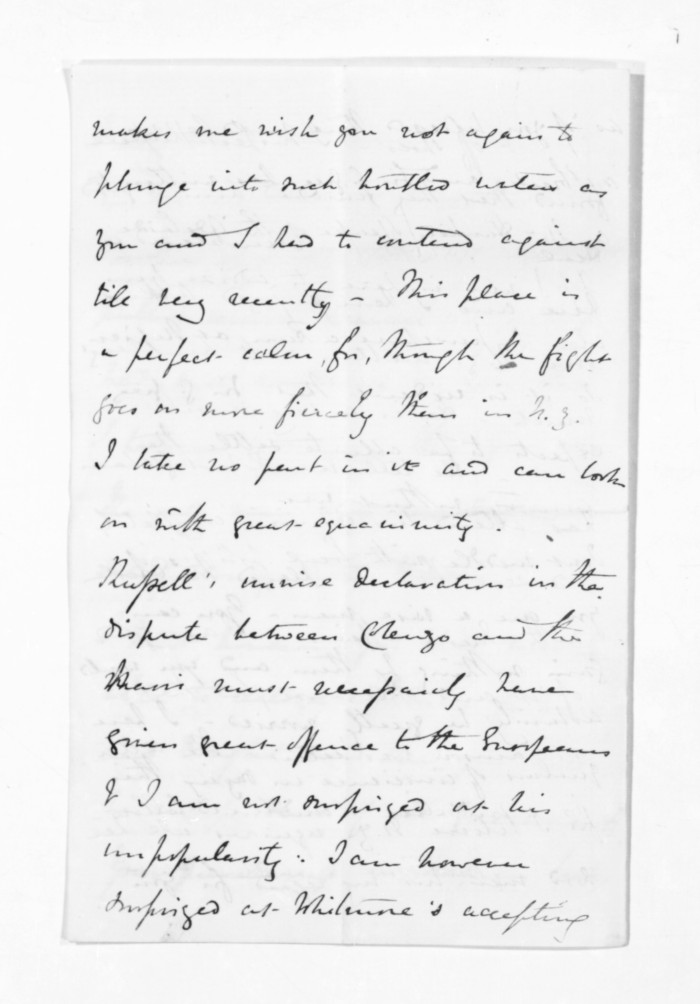 makes me wish you not again to
plunge into such troubled waters as
you and I had to contend against
till very recently – This place is
a perfect calm, for, though the fight
goes on more fiercely than in N.Z.
I take no part in it and can look
on with great equanimity.
Russell's unwise declaration in the
dispute between and the
Maoris must necessarily have
given great offence to the Europeans
& I am not surprized at his
unpopularity. I am however
surprized at Whitmore's accepting